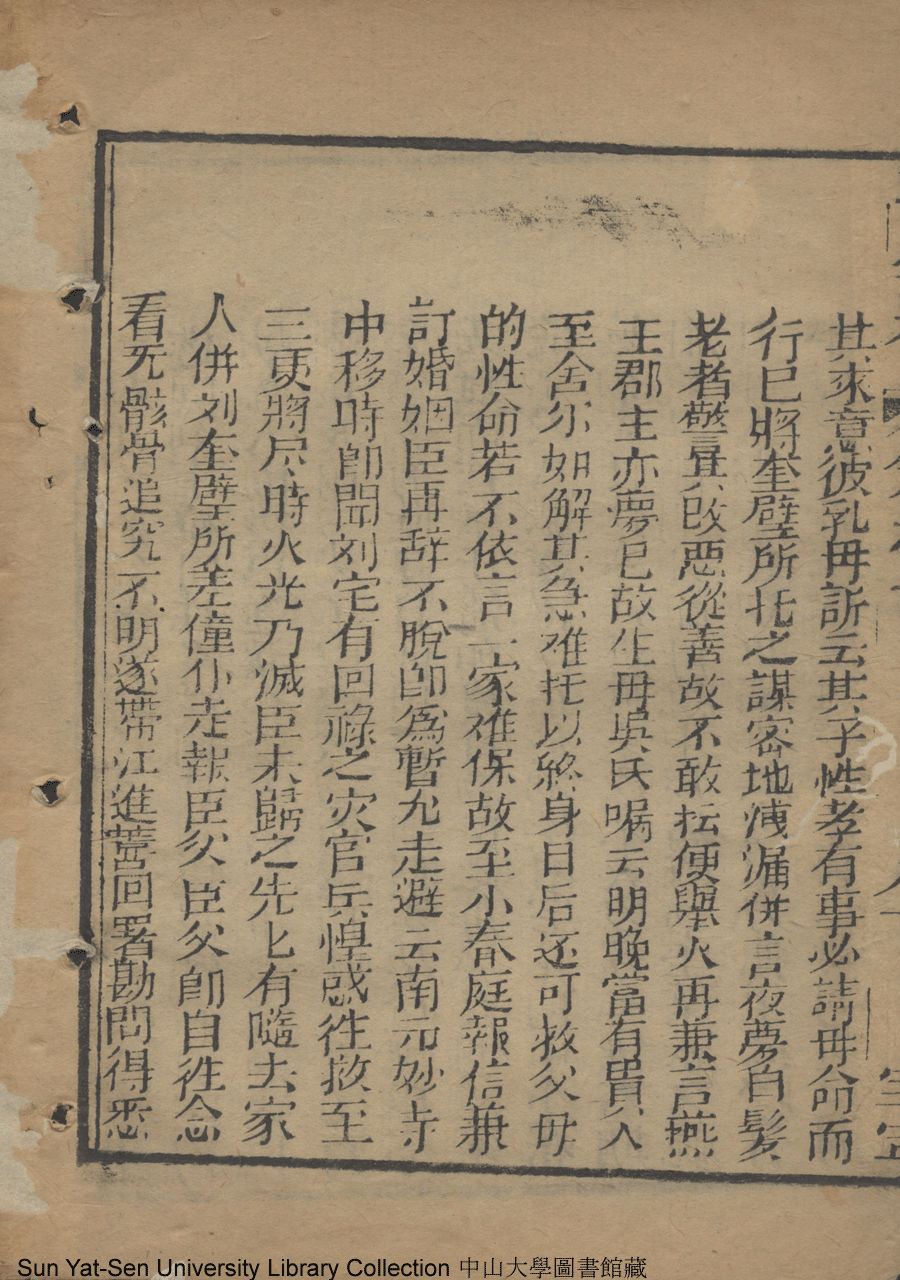 其來意彼乳母訴云其子性孝有事必請毋命而
行已將奎璧所托之謀密地洩漏併言夜夢白髪
老者警異改惡從善故不敢抎便舉火再兼言燕
王郡主亦夢已故生毋吳氏囑云明晚當有貴人
至舍尔如解其急难托以終身日后还可救父母
的性命若不依言一家难保故至小春庭報信兼
訂婚姻臣再辞不脫卽為暫允走避云南元妙寺
中移時卽聞刘宅有回祿之灾官兵惶惑徃救至
三更將尽時火光乃滅臣未歸之先匕有隨去家
人併刘奎璧所差僮仆走報臣父臣父卽自徃念
看旡骸骨追究不明遂帶江進薔回署勘問得悉
Sun Yat-Sen University Library Collection 中山大學圖書館藏